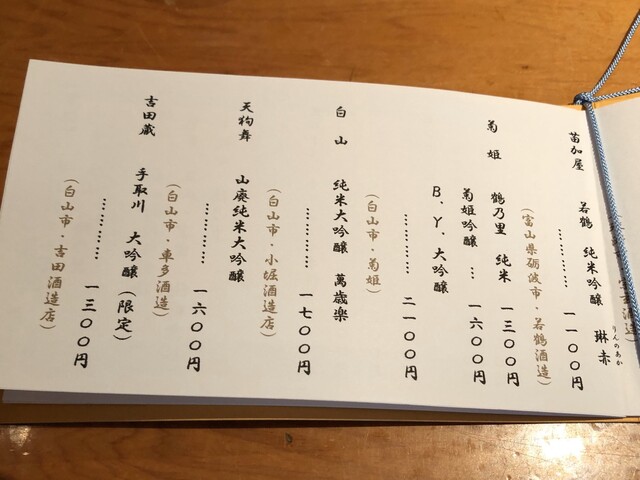 苗加屋 若鶴 純米吟醸 琳赤
りんのあか
………… 一一〇〇円
(富山県砺波市・若鶴酒造)
菊姫 鶴乃里 純米 一三〇〇円
菊姫吟醸 … 一六〇〇円
B.Y.大吟醸
………… 二一〇〇円
(白山市・菊姫)
白山 純米大吟醸 萬歳楽
………… 一七〇〇円
(白山市・小堀酒造店)
天狗舞 山廃純米大吟醸
………… 一六〇〇円
(白山市・車多酒造)
吉田蔵 手取川 大吟醸(限定)
………… 一三〇〇円
(白山市・吉田酒造店)